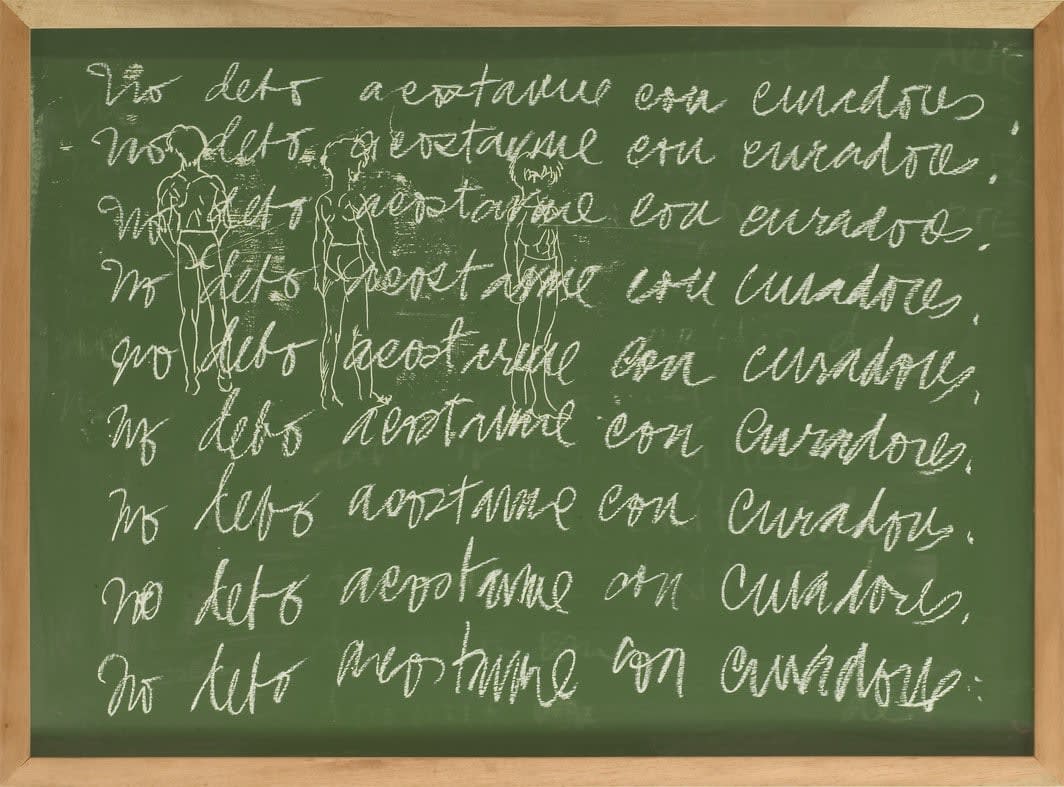 No debo acostarme con curadores,
No debo acostarme con curadores,
No debo acostarme con curadores,
No debo acostarme con curadores,
no debo acostarme con curadores,
no debo acostarme con curadores.
No debo acostarme con curadores.
no debo acostarme con curadores.
No debo acostarme con curadores.